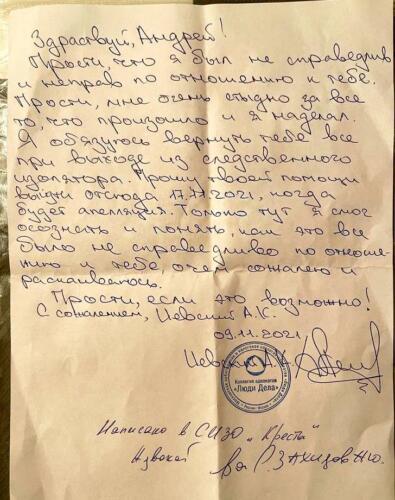 Здраствуй, Андрей!
Прости, что я был не справедлив
и неправ по отношению к тебе.
Прости, мне очень стыдно за все
то, что произошло и я наделал.
Я обязуюсь вернуть тебе все
при выходе из следственного
изолятора. Прошу твоей помощи
выйти отсюда 17.11.2021, когда
будет апеляция. Только тут я смог
осознать и понять, как это все
было не справедливо по отноше-
нию к тебе о чем сожалею и
раскаиваюсь.
Прости, если это возможно!
С сожалением, Цевский А.К.
09.11.2021
Коллегия адвокатов
"Люди Дела"
Написано в СИЗО "Кресты"
Адвокат